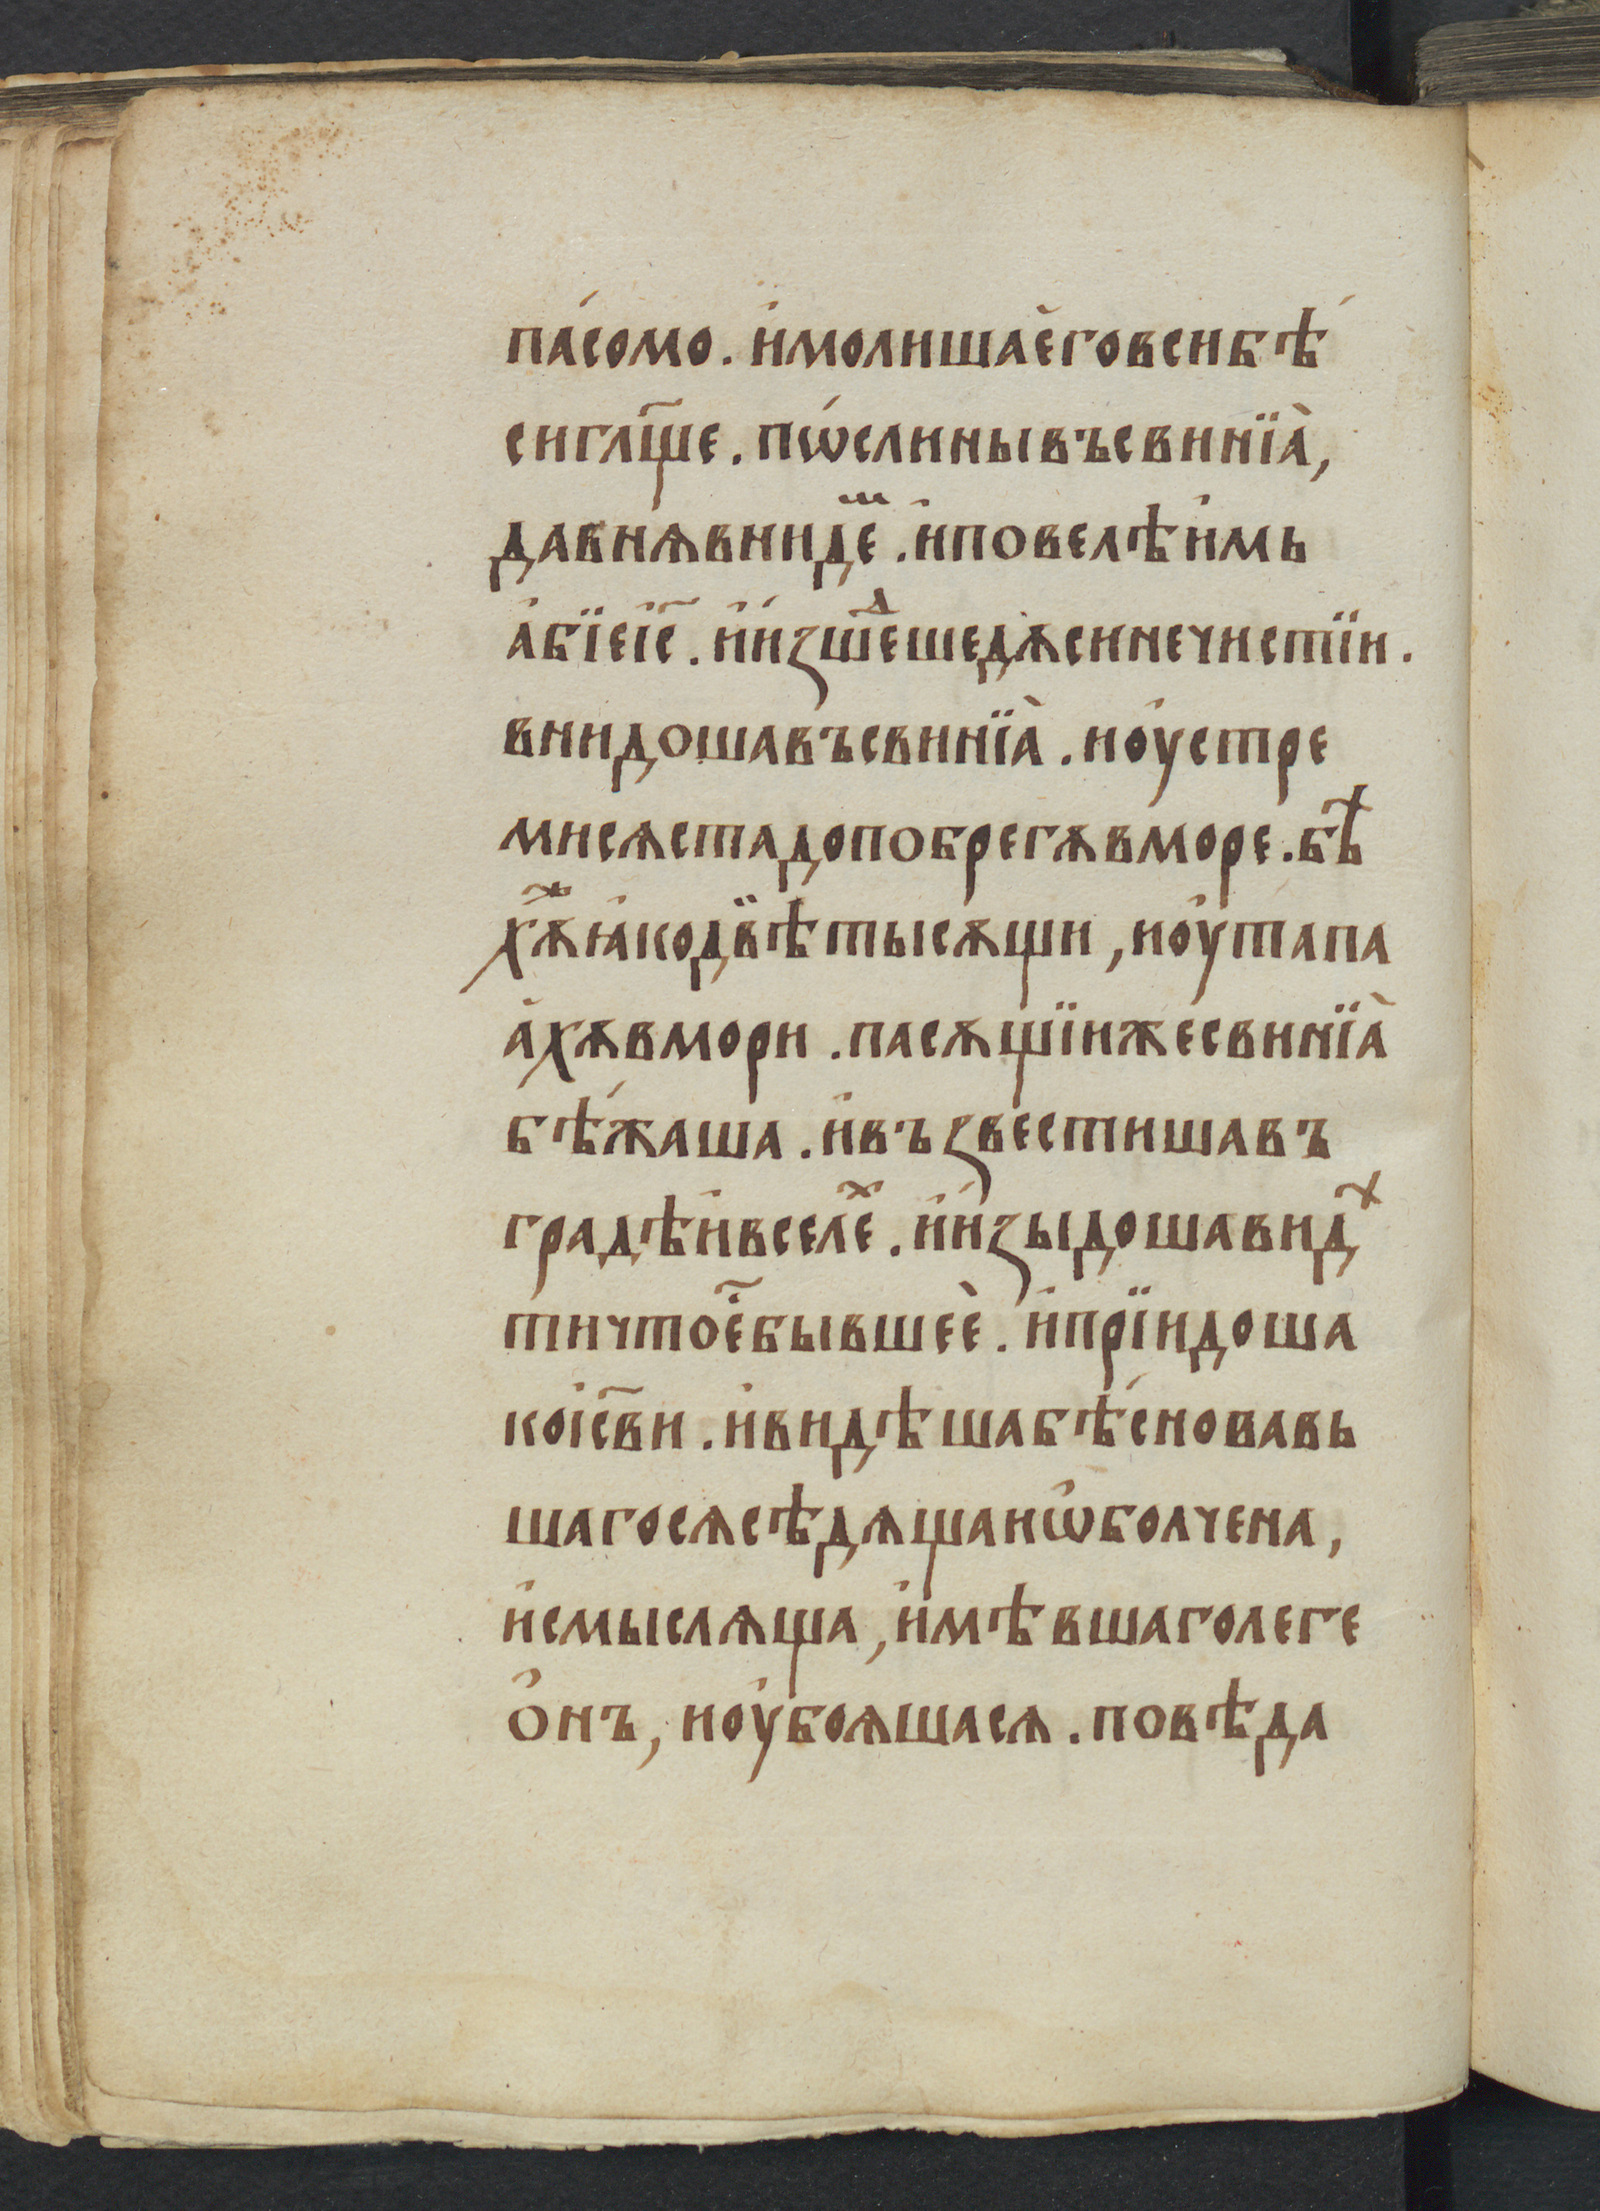 па́сомо. и҆молишаѐговсибѣ́
сигл҃ще. пѡ́слинывъсвинїа̀,
давнѧвниде̑ⷨ. и҆повелѣи҆мь
а҆бїеі҆с҃. и҆и҆́зшеⷣшедѧсинечистїи.
внидошавъсвинїа̀. ноу҆стре
мисѧстадопобрегѧвморе. бѣ҃
хѫⷤꙗ҆кодв̈ѣтысѧщи, ноу҆тапа
а҆хѧвмори. пасѧщїижесвинїа̀
бѣ́жаша. и҆възвестишавъ
градѣи҆вселеⷯ. и҆и҆́зыдошавидⷯ
тичтоѐ҃бывшеѐ. и҆прїидоша
коі҆с҃ви. и҆видѣшабѣ́сновавь
шагосѧсѣдѧщаиѡ҆болчена,
и҆смыслѧща, и҆мѣвшаголеге
о҆нъ, ноу҆боѧшасѧ. повѣда